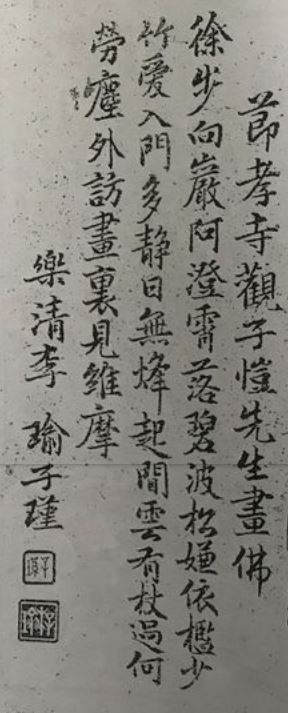 莭孝寺觀子愷先生畫佛
徐步向巖阿澄霄落碧波松嫌依檻少
竹愛入門多静日無烽起間雲有杖過何
勞塵外訪畫裏見維摩
樂清李瑜子瑾